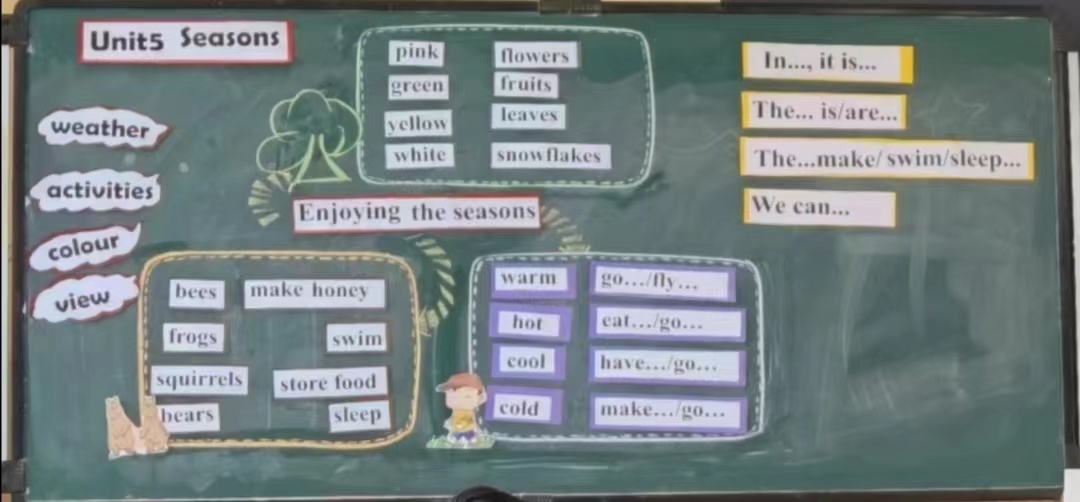 Unit5 Seasons
weather
activities
colour
view
pink flowers
green fruits
yellow leaves
white snowflakes
Enjoying the seasons
bees make honey
frogs swim
squirrels store food
bears sleep
warm go.../fly...
hot eat.../go...
cool have.../go...
cold make.../go...
In..., it is...
The... is/are...
The...make/swim/sleep...
We can...